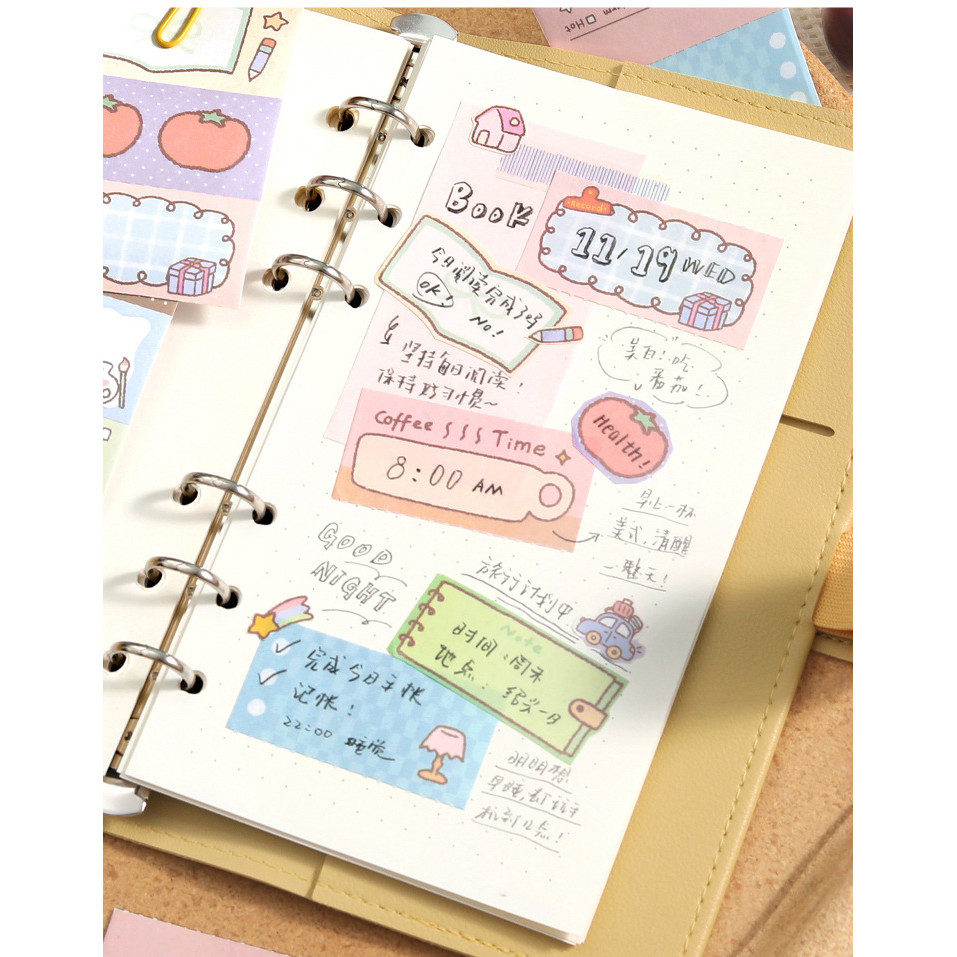 Hot
Book
Record
11/19 WED
今日阅读完成了吗
OK!
No!
坚持每日阅读!
保持好习惯~
美白!吃
番茄!
Health!
Coffee Time
8:00 AM
早上一杯
美式,清醒
一整天!
GOOD
NIGHT
旅行计划中
Note
时间:周末
地点:绍兴一日
完成今日手帐
记帐!
22:00 睡觉
明明想
早睡,却
12点!